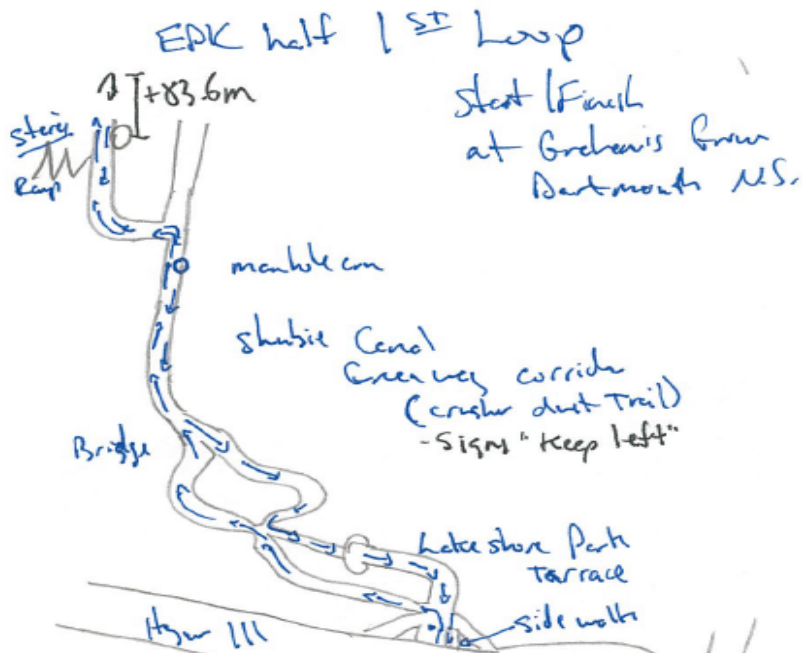 EPK half 1ST Loop
+83.6m
Start/Finish
at Graham's Grove
Dartmouth N.S.
stairs
Ramp
manhole
Shubie Canal
Greenway corridor
(crusher dust Trail)
-Signs "Keep left"
Bridge
Lakeshore Park
Terrace
side walk
Hgwy 111